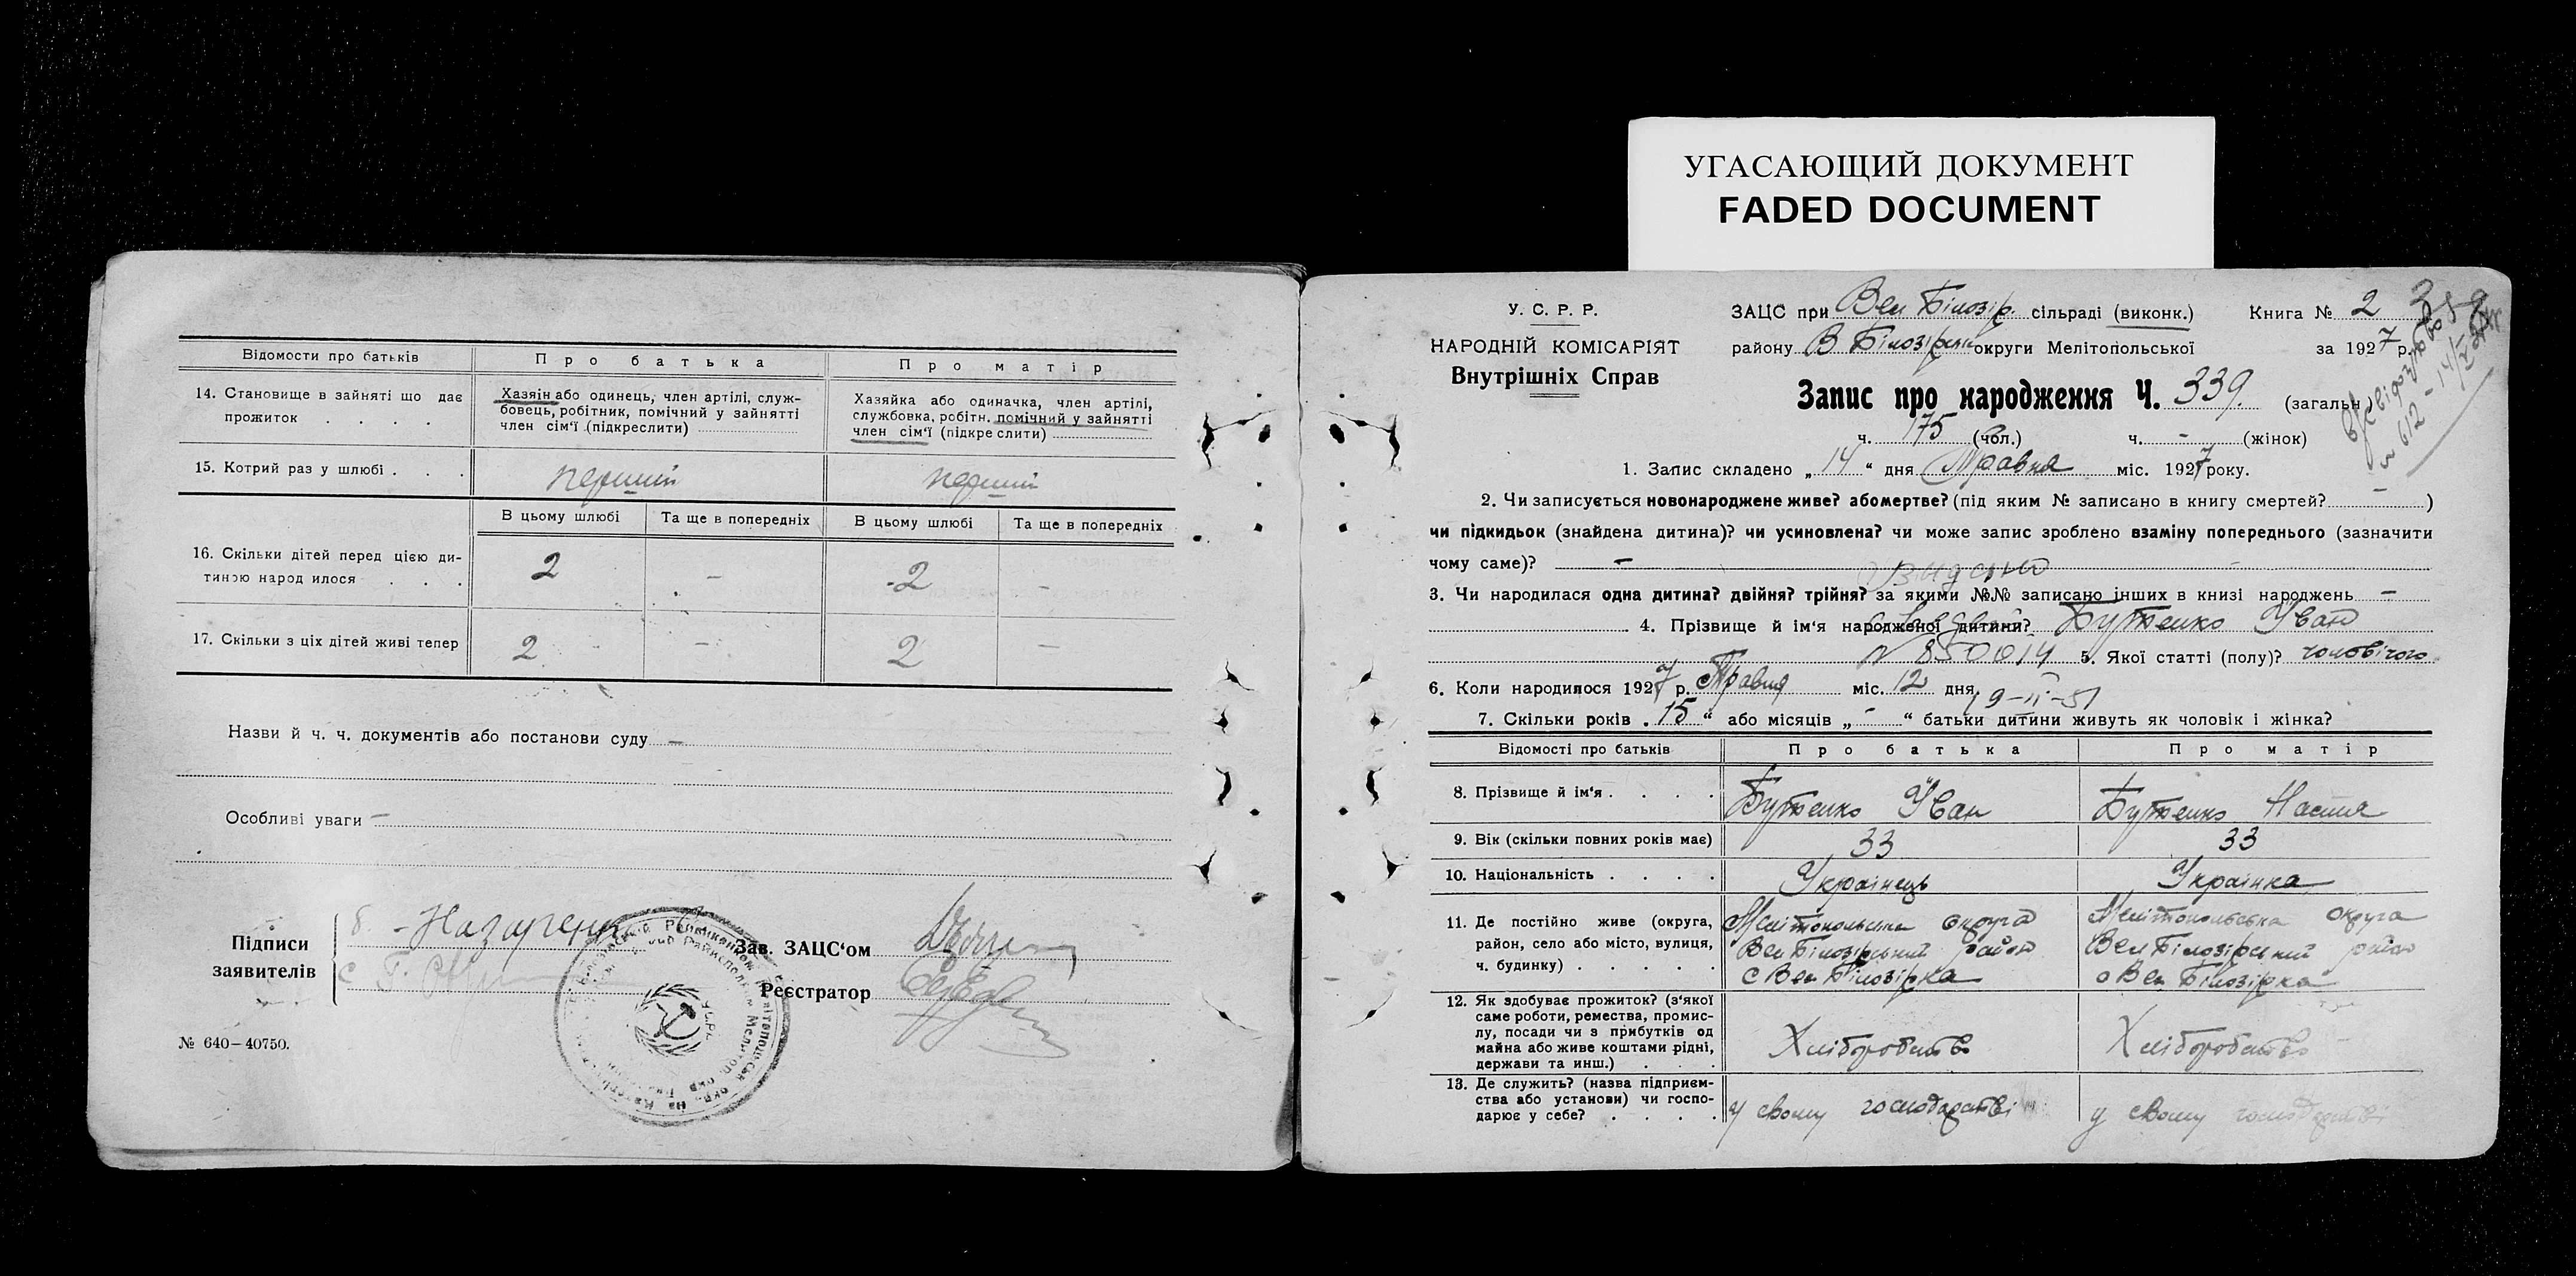 УГАСАЮЩИЙ ДОКУМЕНТ
FADED DOCUMENT
Відомости про батьків
Про батька
Про матір
14. Становище в зайняті що дає прожиток . . . .
Хазяін або одинець, член артілі, служ-
бовець, робітник, помічний у зайнятті
член сім'ї (підкреслити)
Хазяйка або одиначка, член артілі,
службовка, робітн. помічний у зайнятті
член сім'ї (підкреслити)
15. Котрий раз у шлюбі . . .
перший
перший
В цьому шлюбі
Та ще в попередніх
В цьому шлюбі
Та ще в попередніх
16. Скільки дітей перед цією ди-
тиною народилося . . .
2 - 2 -
17. Скільки з ціх дітей живі тепер
2 - 2 -
Назви й ч. ч. документів або постанови суду —
Особливі уваги —
Підписи
заявителів
Назаренко
Зав. ЗАЦС'ом
Реєстратор
№ 640—40750.
У. С. Р. Р.
НАРОДНІЙ КОМІСАРІЯТ
Внутрішніх Справ
ЗАЦС при Вел Білозір. сільраді (виконк.)
Книга № 2
району В Білозірськ округи Мелітопольської
за 1927 р.
Запис про народження Ч. 339. (загальн.)
ч. 175 (чол.) ч. - (жінок)
1. Запис складено „14“ дня Травня міс. 1927 року.
2. Чи записується новонароджене живе? або мертве? (під яким № записано в книгу смертей? — )
чи підкидьок (знайдена дитина)? чи усиновлена? чи може запис зроблено взаміну попереднього (зазначити
чому саме)? —
3. Чи народилася одна дитина? двійня? трійня? за якими №№ записано інших в книзі народжень —
4. Прізвище й ім'я народженої дитини? Бутенко Іван
5. Якої статті (полу)? чоловічого
6. Коли народилося 1927 р. Травня міс. 12 дня
9-II-51
7. Скільки років „15“ або місяців „-“ батьки дитини живуть як чоловік і жінка?
Відомості про батьків
Про батька
Про матір
8. Прізвище й ім'я . . . .
Бутенко Іван
Бутенко Настя
9. Вік (скільки повних років має)
33
33
10. Національність . . . .
Українець
Українка
11. Де постійно живе (округа,
район, село або місто, вулиця,
ч. будинку) . . . . .
Мелітопольська округа
Вел Білозірський район
с Вел Білозірка
Мелітопольська округа
Вел Білозірський район
с Вел Білозірка
12. Як здобуває прожиток? (з'якої
саме роботи, ремества, промис-
лу, посади чи з прибутків од
майна або живе коштами рідні,
держави та инш.) . . .
Хліборобство
Хліборобство
13. Де служить? (назва підприєм-
ства або установи) чи госпо-
дарює у себе? . . . .
у свому господарстві
у свому господарстві